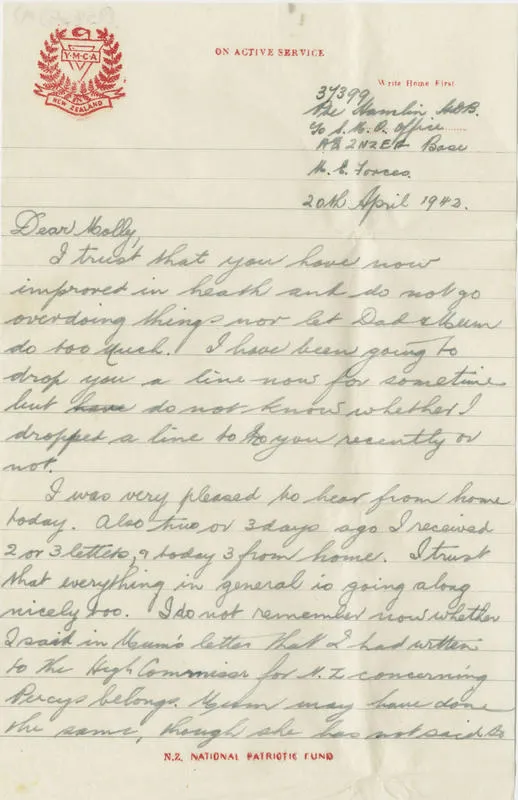 Y·M·C·A
NEW ZEALAND
ON ACTIVE SERVICE
Write Home First
37399
Pte Hamlin H.D.B.
c/o S.M.O. Office
2NZEF Base
M. E. Forces.
20th April 1942.
Dear Molly,
I trust that you have now
improved in heath and do not go
overdoing things nor let Dad & Mum
do too much. I have been going to
drop you a line now for sometime
but have do not know whether I
dropped a line to to you recently or
not.
I was very pleased to hear from home
today. Also two or 3 days ago I received
2 or 3 letters, & today 3 from home. I trust
that everything in general is going along
nicely too. I do not remember now whether
I said in Mum's letter that I had written
to the High Commissr for N.Z concerning
Percys belongs. Mum may have done
the same, though she has not said so
N.Z. NATIONAL PATRIOTIC FUND